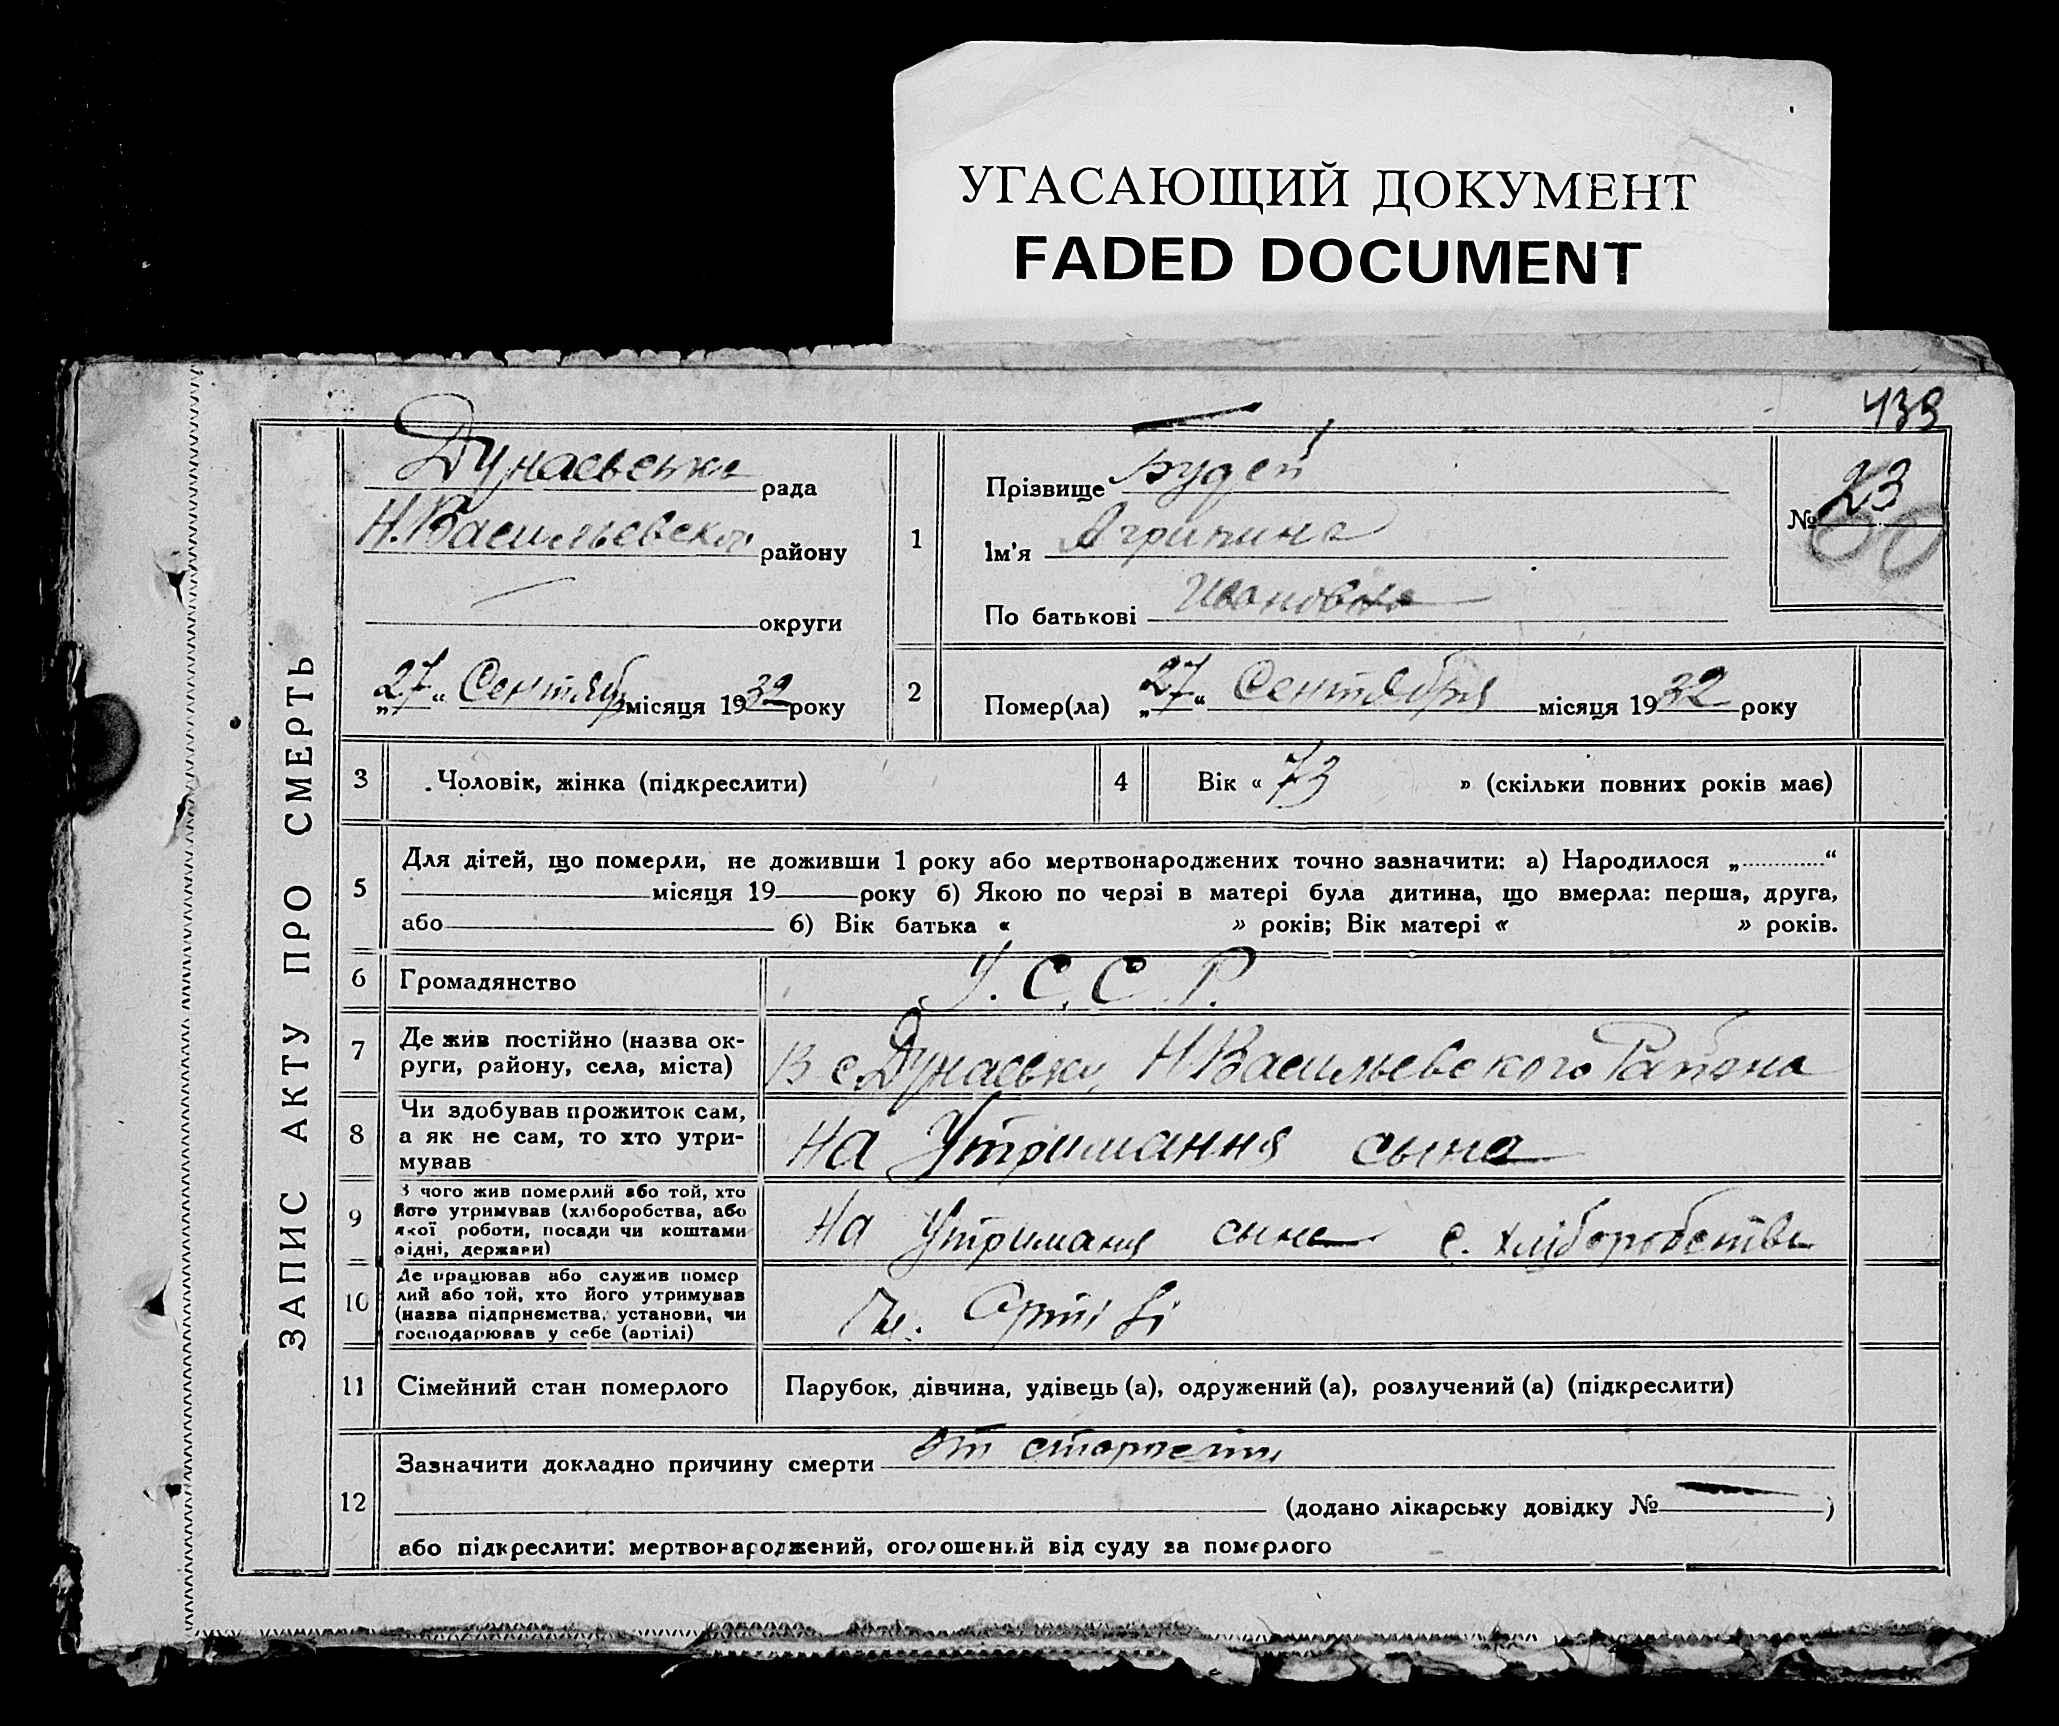 УГАСАЮЩИЙ ДОКУМЕНТ
FADED DOCUMENT
439
ЗАПИС АКТУ ПРО СМЕРТЬ
Дунаєвська рада
Н.Васильевского району
округи
„27“ Сентябр місяця 1932 року
1
Прізвище Будей
Ім'я Агрипина
По батькові Ивановна
№ 23
2
Помер(ла) „27“ Сентября місяця 1932 року
3
Чоловік, жінка (підкреслити)
4
Вік « 73 » (скільки повних років має)
5
Для дітей, що померли, не доживши 1 року або мертвонароджених точно зазначити: а) Народилося „ “
місяця 19 року б) Якою по черзі в матері була дитина, що вмерла: перша, друга,
або б) Вік батька « » років; Вік матері « » років.
6
Громадянство
У.С.С.Р.
7
Де жив постійно (назва ок-
руги, району, села, міста)
В с Дунаєвку, Н Васильевского Района
8
Чи здобував прожиток сам,
а як не сам, то хто утри-
мував
На Утримання сына
9
З чого жив померлий або той, хто
його утримував (хліборобства, або
якої роботи, посади чи коштами
рідні, держави)
На Утриманя сына с. хліборобства
10
Де працював або служив помер
лий або той, хто його утримував
(назва підприємства, установи, чи
господарював у себе (артілі)
Артілі
11
Сімейний стан померлого
Парубок, дівчина, удівець (а), одружений (а), розлучений (а) (підкреслити)
12
Зазначити докладно причину смерти от старости
(додано лікарську довідку № )
або підкреслити: мертвонароджений, оголошений від суду за померлого